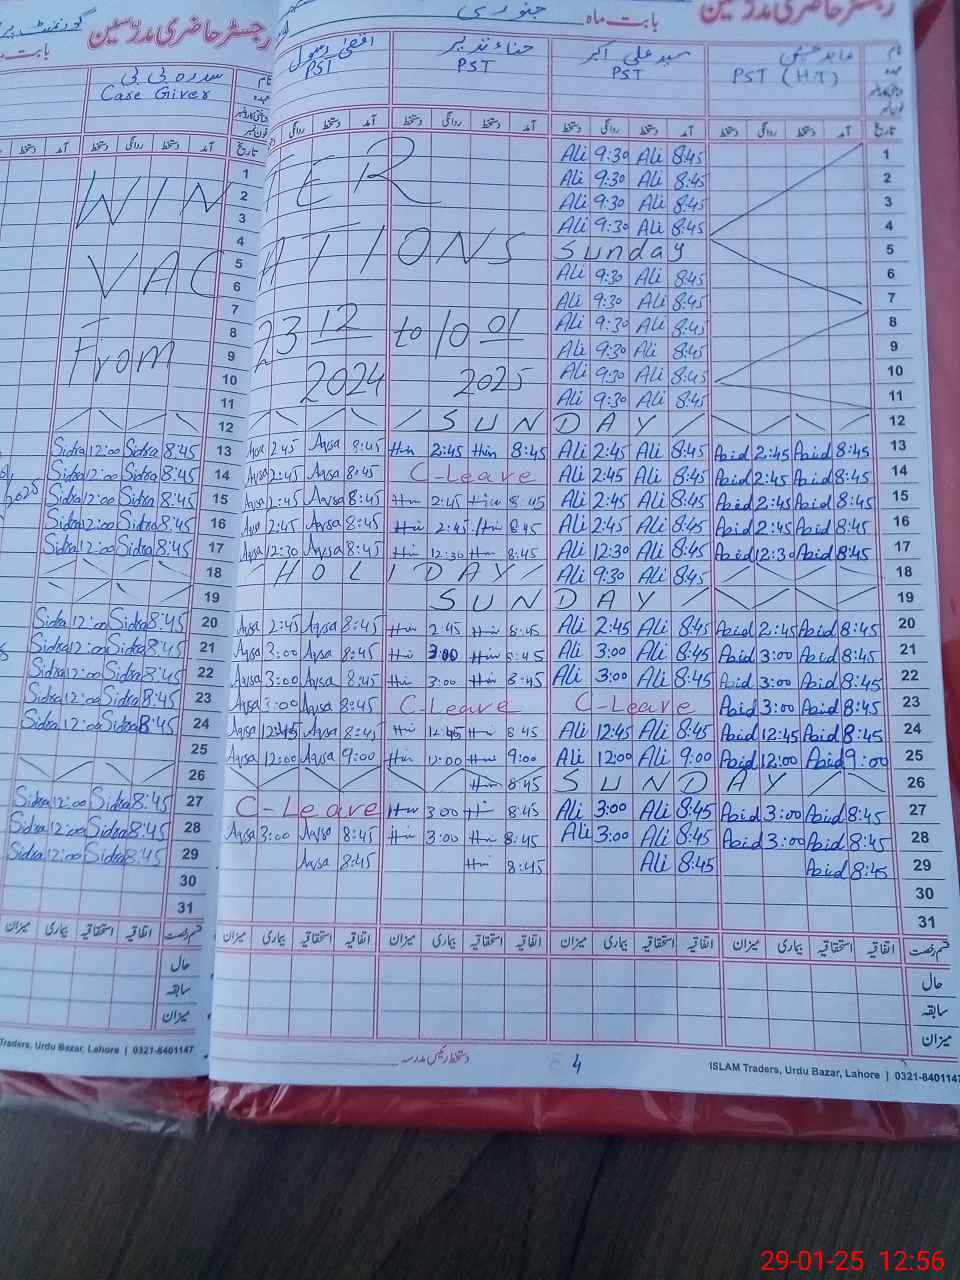 رجسٹر حاضری مدرّسین
بابت ماہ جنوری
رجسٹر حاضری مدرّسین
گورنمنٹ پر
نام عابد حسین
سید علی اکبر
حناء نذیر
اقصٰی رسول
عہدہ PST (H.T)
PST
PST
PST
نام سدرہ بی بی
عہدہ Care Giver
تاریخ آمد دستخط روانگی دستخط آمد دستخط روانگی دستخط آمد دستخط روانگی دستخط آمد دستخط روانگی
WINTER
VACATIONS
From 23 12 2024 to 10 01 2025
Ali 9:30 Ali 8:45 1
Ali 9:30 Ali 8:45 2
Ali 9:30 Ali 8:45 3
Ali 9:30 Ali 8:45 4
Sunday 5
Ali 9:30 Ali 8:45 6
Ali 9:30 Ali 8:45 7
Ali 9:30 Ali 8:45 8
Ali 9:30 Ali 8:45 9
Ali 9:30 Ali 8:45 10
Ali 9:30 Ali 8:45 11
SUNDAY 12
Aqsa 2:45 Aqsa 8:45 Hin 2:45 Hin 8:45 Ali 2:45 Ali 8:45 Abid 2:45 Abid 8:45 13
Aqsa 2:45 Aqsa 8:45 C-Leave Ali 2:45 Ali 8:45 Abid 2:45 Abid 8:45 14
Aqsa 2:45 Aqsa 8:45 Hin 2:45 Hin 8:45 Ali 2:45 Ali 8:45 Abid 2:45 Abid 8:45 15
Aqsa 2:45 Aqsa 8:45 Hin 2:45 Hin 8:45 Ali 2:45 Ali 8:45 Abid 2:45 Abid 8:45 16
Aqsa 12:30 Aqsa 8:45 Hin 12:30 Hin 8:45 Ali 12:30 Ali 8:45 Abid 12:30 Abid 8:45 17
HOLIDAY Ali 9:30 Ali 8:45 18
SUNDAY 19
Aqsa 2:45 Aqsa 8:45 Hin 2:45 Hin 8:45 Ali 2:45 Ali 8:45 Abid 2:45 Abid 8:45 20
Aqsa 3:00 Aqsa 8:45 Hin 3:00 Hin 8:45 Ali 3:00 Ali 8:45 Abid 3:00 Abid 8:45 21
Aqsa 3:00 Aqsa 8:45 Hin 3:00 Hin 8:45 Ali 3:00 Ali 8:45 Abid 3:00 Abid 8:45 22
Aqsa 3:00 Aqsa 8:45 C-Leave C-Leave Abid 3:00 Abid 8:45 23
Aqsa 12:45 Aqsa 8:45 Hin 12:45 Hin 8:45 Ali 12:45 Ali 8:45 Abid 12:45 Abid 8:45 24
Aqsa 12:00 Aqsa 9:00 Hin 12:00 Hin 9:00 Ali 12:00 Ali 9:00 Abid 12:00 Abid 9:00 25
Hin 8:45 SUNDAY 26
C-Leave Hin 3:00 Hin 8:45 Ali 3:00 Ali 8:45 Abid 3:00 Abid 8:45 27
Aqsa 3:00 Aqsa 8:45 Hin 3:00 Hin 8:45 Ali 3:00 Ali 8:45 Abid 3:00 Abid 8:45 28
Aqsa 8:45 Hin 8:45 Ali 8:45 Abid 8:45 29
30
31
قسم رخصت اتفاقیہ استحقاقیہ بیماری میزان اتفاقیہ استحقاقیہ بیماری میزان اتفاقیہ استحقاقیہ بیماری میزان اتفاقیہ استحقاقیہ بیماری میزان
حال
سابقہ
میزان
دستخط رئیس مدرسہ
4
ISLAM Traders, Urdu Bazar, Lahore | 0321-8401147
تاریخ آمد روانگی دستخط
1
2
3
4
5
6
7
8
9
10
11
12
Sidra 12:00 Sidra 8:45 13
Sidra 12:00 Sidra 8:45 14
2025 Sidra 12:00 Sidra 8:45 15
Sidra 12:00 Sidra 8:45 16
Sidra 12:00 Sidra 8:45 17
18
19
Sidra 12:00 Sidra 8:45 20
Sidra 12:00 Sidra 8:45 21
Sidra 12:00 Sidra 8:45 22
Sidra 12:00 Sidra 8:45 23
Sidra 12:00 Sidra 8:45 24
25
26
Sidra 12:00 Sidra 8:45 27
Sidra 12:00 Sidra 8:45 28
Sidra 12:00 Sidra 8:45 29
30
31
قسم رخصت اتفاقیہ استحقاقیہ بیماری میزان
حال
سابقہ
میزان
Traders, Urdu Bazar, Lahore | 0321-8401147
29-01-25 12:56